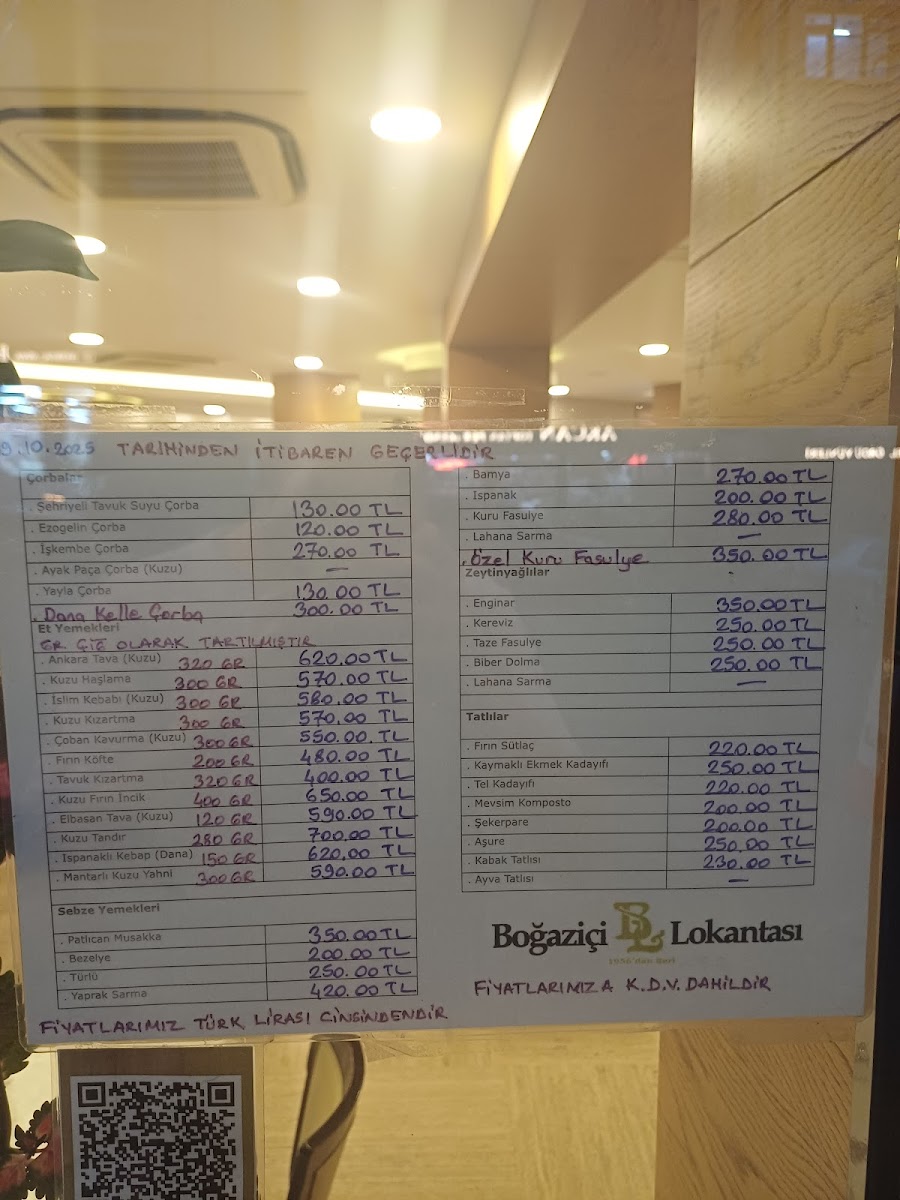 9.10.2025 TARİHİNDEN İTİBAREN GEÇERLİDİR
Çorbalar
. Şehriyeli Tavuk Suyu Çorba 130.00 TL
. Ezogelin Çorba 120.00 TL
. İşkembe Çorba 270.00 TL
. Ayak Paça Çorba (Kuzu) —
. Yayla Çorba 130.00 TL
. Dana Kelle Çorba 300.00 TL
Et Yemekleri
GR ÇİĞ OLARAK TARTILMIŞTIR
. Ankara Tava (Kuzu) 320 GR 620.00 TL
. Kuzu Haşlama 300 GR 570.00 TL
. İslim Kebabı (Kuzu) 300 GR 580.00 TL
. Kuzu Kızartma 300 GR 570.00 TL
. Çoban Kavurma (Kuzu) 300 GR 550.00 TL
. Fırın Köfte 200 GR 480.00 TL
. Tavuk Kızartma 320 GR 400.00 TL
. Kuzu Fırın İncik 400 GR 650.00 TL
. Elbasan Tava (Kuzu) 120 GR 590.00 TL
. Kuzu Tandır 280 GR 700.00 TL
. Ispanaklı Kebap (Dana) 150 GR 620.00 TL
. Mantarlı Kuzu Yahni 300 GR 590.00 TL
Sebze Yemekleri
. Patlıcan Musakka 350.00 TL
. Bezelye 200.00 TL
. Türlü 250.00 TL
. Yaprak Sarma 420.00 TL
FİYATLARIMIZ TÜRK LİRASI CİNSİNDENDİR
. Bamya 270.00 TL
. Ispanak 200.00 TL
. Kuru Fasulye 280.00 TL
. Lahana Sarma —
. Özel Kuru Fasulye 350.00 TL
Zeytinyağlılar
. Enginar 350.00 TL
. Kereviz 250.00 TL
. Taze Fasulye 250.00 TL
. Biber Dolma 250.00 TL
. Lahana Sarma —
Tatlılar
. Fırın Sütlaç 220.00 TL
. Kaymaklı Ekmek Kadayıfı 250.00 TL
. Tel Kadayıfı 220.00 TL
. Mevsim Komposto 200.00 TL
. Şekerpare 200.00 TL
. Aşure 250.00 TL
. Kabak Tatlısı 230.00 TL
. Ayva Tatlısı —
Boğaziçi BL Lokantası
1956'dan Beri
FİYATLARIMIZA K.D.V. DAHİLDİR